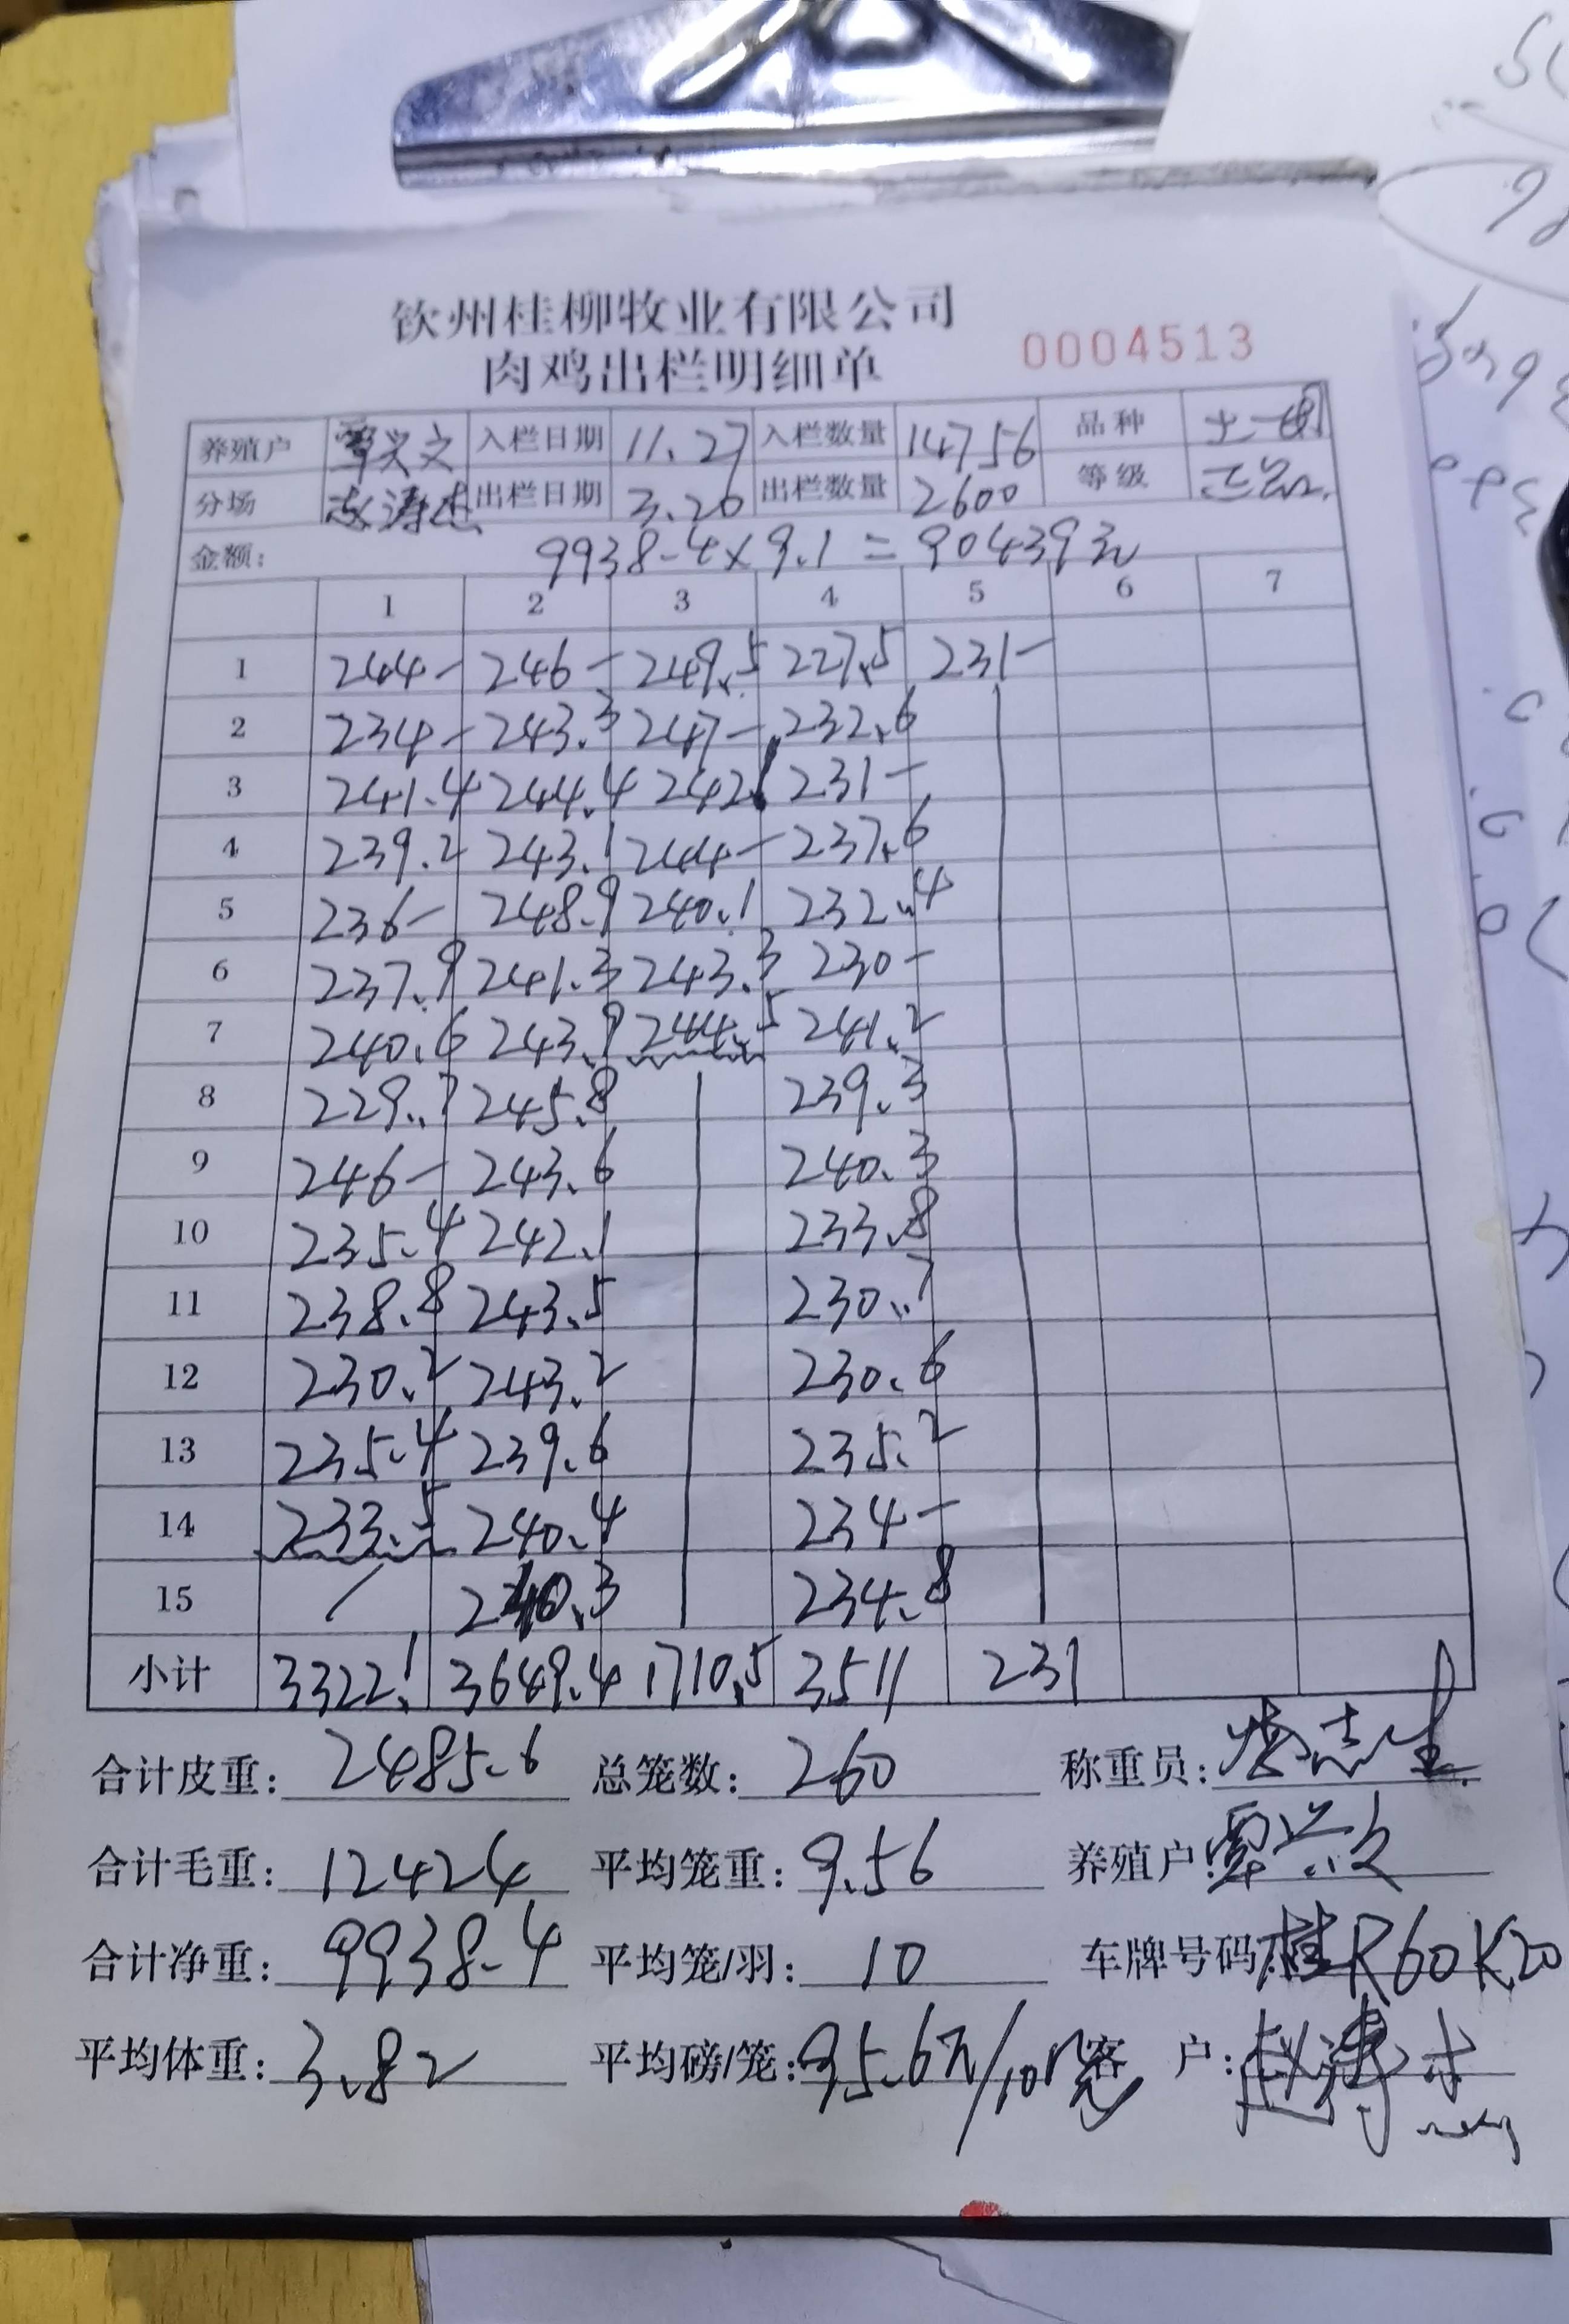 钦州桂柳牧业有限公司
肉鸡出栏明细单 0004513
养殖户 覃兴文 入栏日期 11.27 入栏数量 14756 品种 土一
分场 出栏日期 3.20 出栏数量 2600 等级
金额: 9938-4×9.1=90439元
1 2 3 4 5 6 7
1 244- 246- 249.5 227.5 231-
2 234- 243.3 247- 232.6
3 241.4 244.4 242.1 231-
4 239.2 243.1 244- 237.6
5 236- 248.9 240.1 232.4
6 237.9 241.3 243.3 230-
7 240.6 243.9 244.5 241.2
8 229.7 245.8 239.3
9 246- 243.6 240.3
10 235.4 242.1 233.8
11 238.8 243.5 230.7
12 230.2 243.2 230.6
13 235.4 239.6 235.2
14 233.5 240.4 234-
15 / 240.3 234.8
小计 3322.1 3649.4 1710.5 3511 231
合计皮重: 2485-6 总笼数: 260 称重员:
合计毛重: 12424 平均笼重: 9.56 养殖户: 覃兴文
合计净重: 9938-4 平均笼/羽: 10 车牌号码: 桂R60K20
平均体重: 3.82 平均磅/笼: 95.6 客 户: